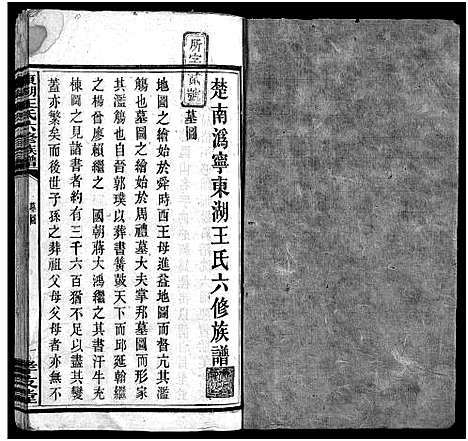 所字貳號
楚南溈寧東湖王氏六修族譜
墓圖
地圖之繪始於舜時西王母進益地圖而督亢其濫
觴也墓圖之繪始於周禮墓大夫掌邦墓圖而形家
其濫觴也自晉郭璞以葬書簧鼓天下而邱延翰繼
之楊曾廖賴繼之 國朝蔣大鴻繼之其書汗牛充
棟圖之見諸書者約有三千六百猶不足以盡其變
蓋亦繁矣而後世子孫之葬祖父母父母者亦無不
東湖王氏六修族譜
墓圖